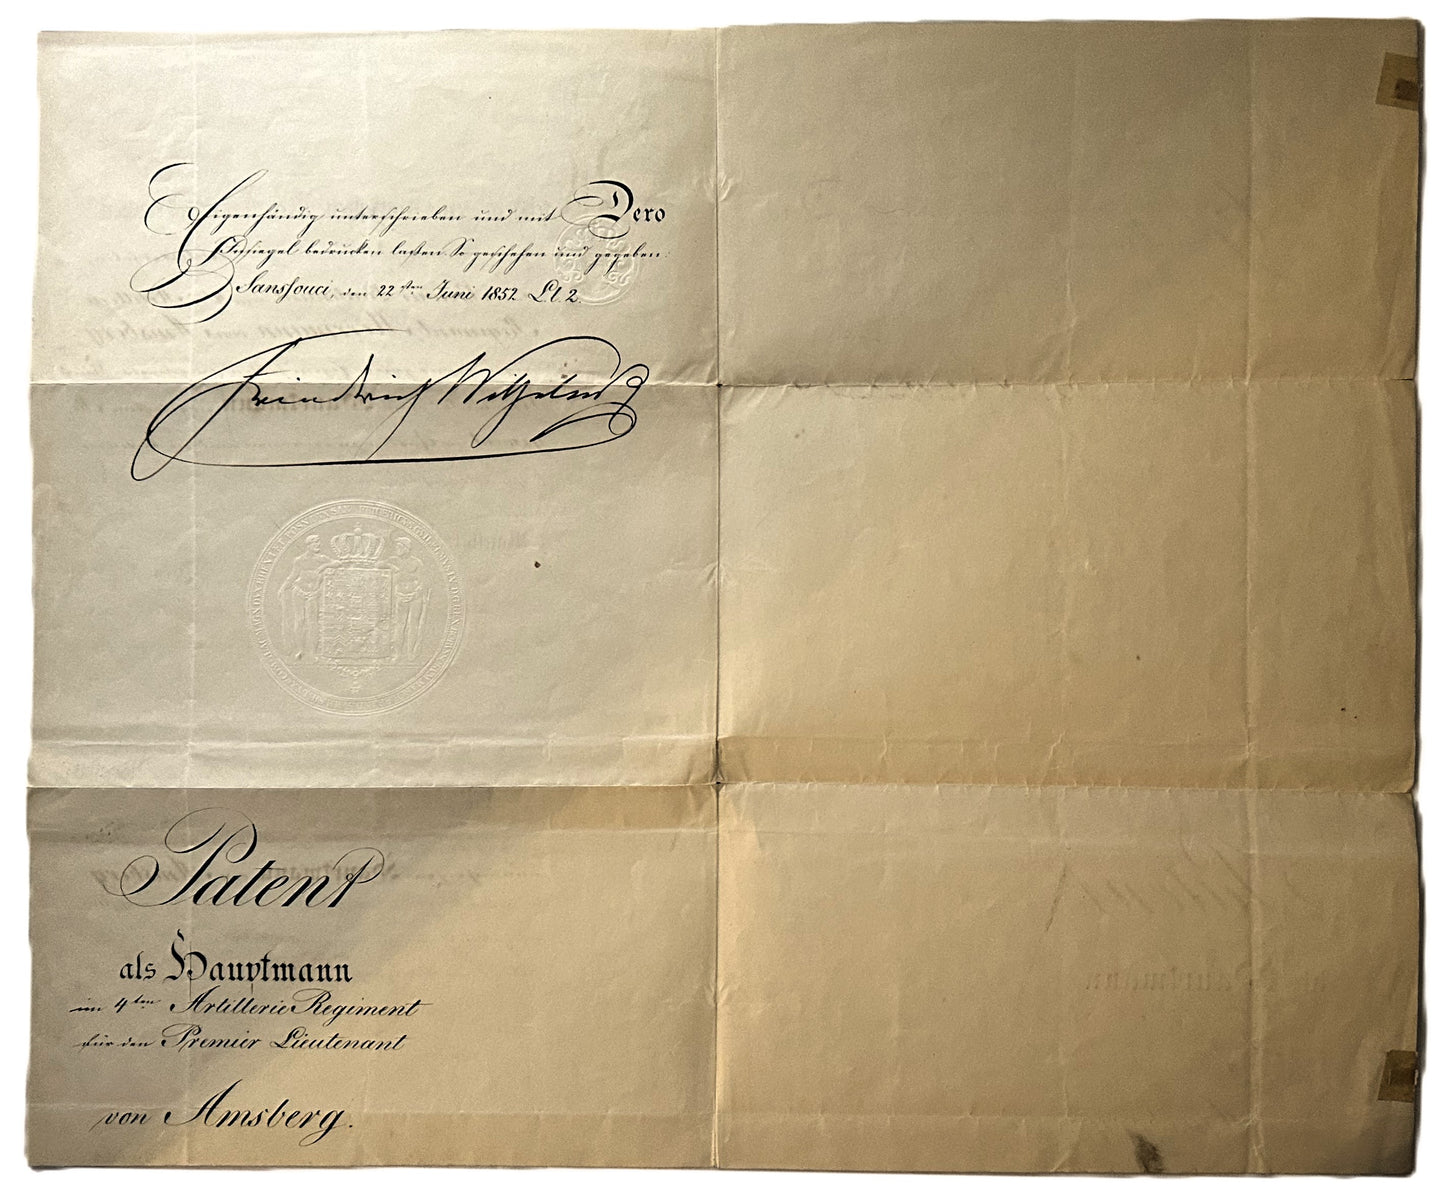 Eigenhändig unterschrieben und mit Dero
Insiegel bedrucken laßen. So geschehen und gegeben:
Sanssouci, den 22sten Juni 1852. Lt. 2.
Friedrich Wilhelm
Patent
als Hauptmann
im 4ten Artillerie Regiment
für den Premier Lieutenant
von Amsberg.